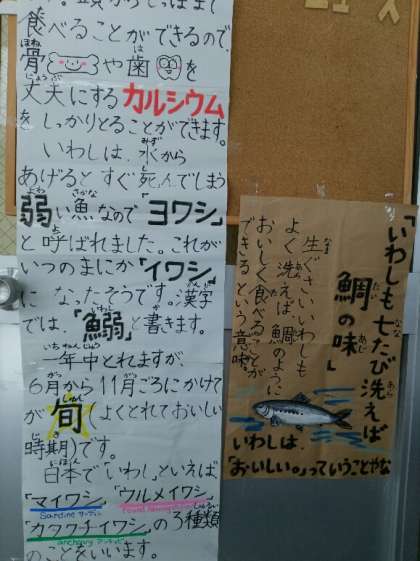 食べることができるので、
骨や歯を
丈夫にするカルシウム
をしっかりとることができます。
いわしは、水から
あげるとすぐ死んでしまう
弱い魚なので「ヨワシ」
と呼ばれました。これが
いつのまにか「イワシ」
になったそうです。漢字
では、「鰯」と書きます。
一年中とれますが、
6月から11月ごろにかけて
が旬(よくとれておいしい
時期)です。
日本で「いわし」といえば、
「マイワシ」「ウルメイワシ」
「カタクチイワシ」の3種類
のことをいいます。
「いわしも七たび洗えば
鯛の味」
生ぐさいいわしも
よく洗えば鯛のように
おいしく食べることが
できるという意味。
いわしは、
「おいしい。」っていうことやな